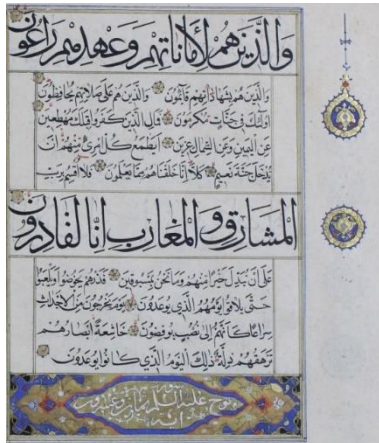 وَالَّذِينَ هُمْ لِأَمَانَاتِهِمْ وَعَهْدِهِمْ رَاعُونَ
وَالَّذِينَ هُمْ بِشَهَادَاتِهِمْ قَائِمُونَ وَالَّذِينَ هُمْ عَلَى صَلَاتِهِمْ يُحَافِظُونَ
أُولَئِكَ فِي جَنَّاتٍ مُكْرَمُونَ فَمَالِ الَّذِينَ كَفَرُوا قِبَلَكَ مُهْطِعِينَ
عَنِ الْيَمِينِ وَعَنِ الشِّمَالِ عِزِينَ أَيَطْمَعُ كُلُّ امْرِئٍ مِنْهُمْ أَنْ
يُدْخَلَ جَنَّةَ نَعِيمٍ كَلَّا إِنَّا خَلَقْنَاهُمْ مِمَّا يَعْلَمُونَ فَلَا أُقْسِمُ بِرَبِّ
الْمَشَارِقِ وَالْمَغَارِبِ إِنَّا لَقَادِرُونَ
عَلَى أَنْ نُبَدِّلَ خَيْرًا مِنْهُمْ وَمَا نَحْنُ بِمَسْبُوقِينَ فَذَرْهُمْ يَخُوضُوا وَيَلْعَبُوا
حَتَّى يُلَاقُوا يَوْمَهُمُ الَّذِي يُوعَدُونَ يَوْمَ يَخْرُجُونَ مِنَ الْأَجْدَاثِ
سِرَاعًا كَأَنَّهُمْ إِلَى نُصُبٍ يُوفِضُونَ خَاشِعَةً أَبْصَارُهُمْ
تَرْهَقُهُمْ ذِلَّةٌ ذَلِكَ الْيَوْمُ الَّذِي كَانُوا يُوعَدُونَ
نوح عليه السلام